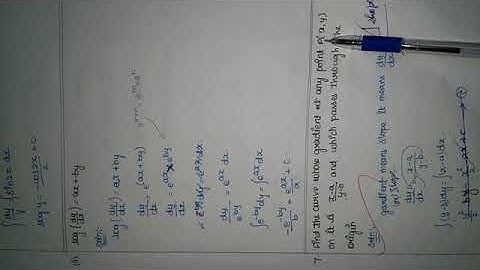 ∫dy/y = ∫sin2x dx
log y = -cos2x/2 + c
(ii) log(dy/dx) = ax+by
Soln:
log(dy/dx) = ax+by
dy/dx = e^(ax+by)
e^(m+n) = e^m + e^n
dy/dx = e^ax × e^by
dy/e^by = e^ax dx
∫e^-by dy = ∫e^ax dx
e^-by/-b = e^ax/a + c
7. Find the curve whose gradient at any point P(x,y)
on it is x-a/y-b and which passes through the
origin
Soln:
gradient means slope
slope It means dy/dx
dy/dx = x-a/y-b
∫(y-b)dy = ∫(x-a)dx
y²/2 - by = x²/2 - ax + c → ①